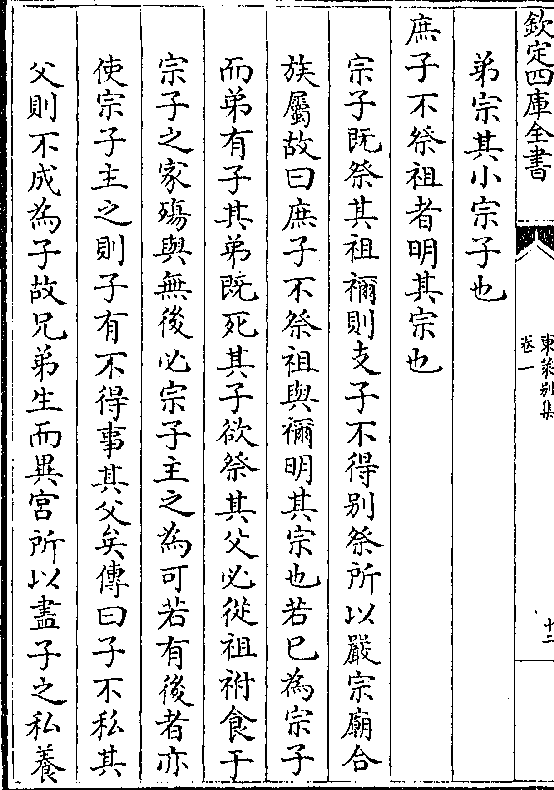 欽定四庫全書
東萊别集
卷一
十二
弟宗其小宗子也
庶子不祭祖者明其宗也
宗子既祭其祖禰則支子不得别祭所以嚴宗廟合
族屬故曰庶子不祭祖與禰明其宗也若已為宗子
而弟有子其弟既死其子欲祭其父必從祖祔食于
宗子之家殤與無後必宗子主之為可若有後者亦
使宗子主之則子有不得事其父矣傳曰子不私其
父則不成為子故兄弟生而異宫所以盡子之私養